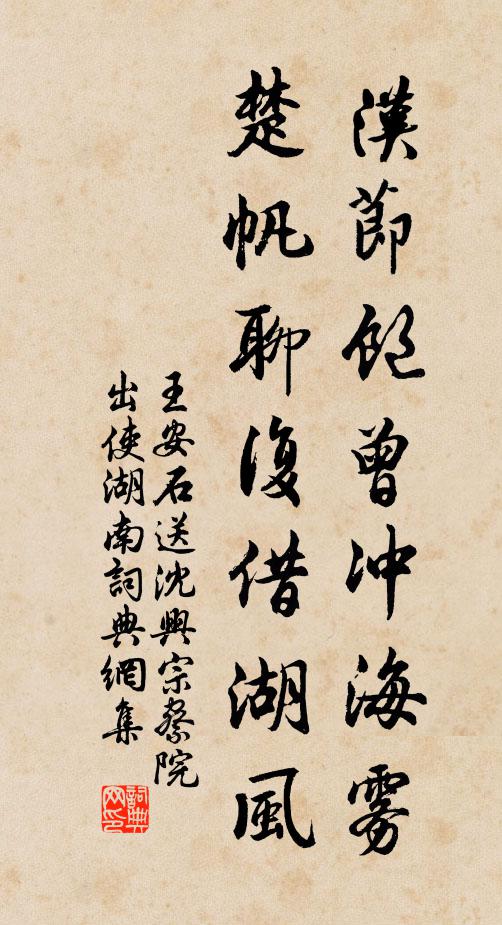 漢節飽曾冲海雾
楚帆聊復借湖風
王安石送沈興宗察院
出使湖南詞典網集
詞典网印